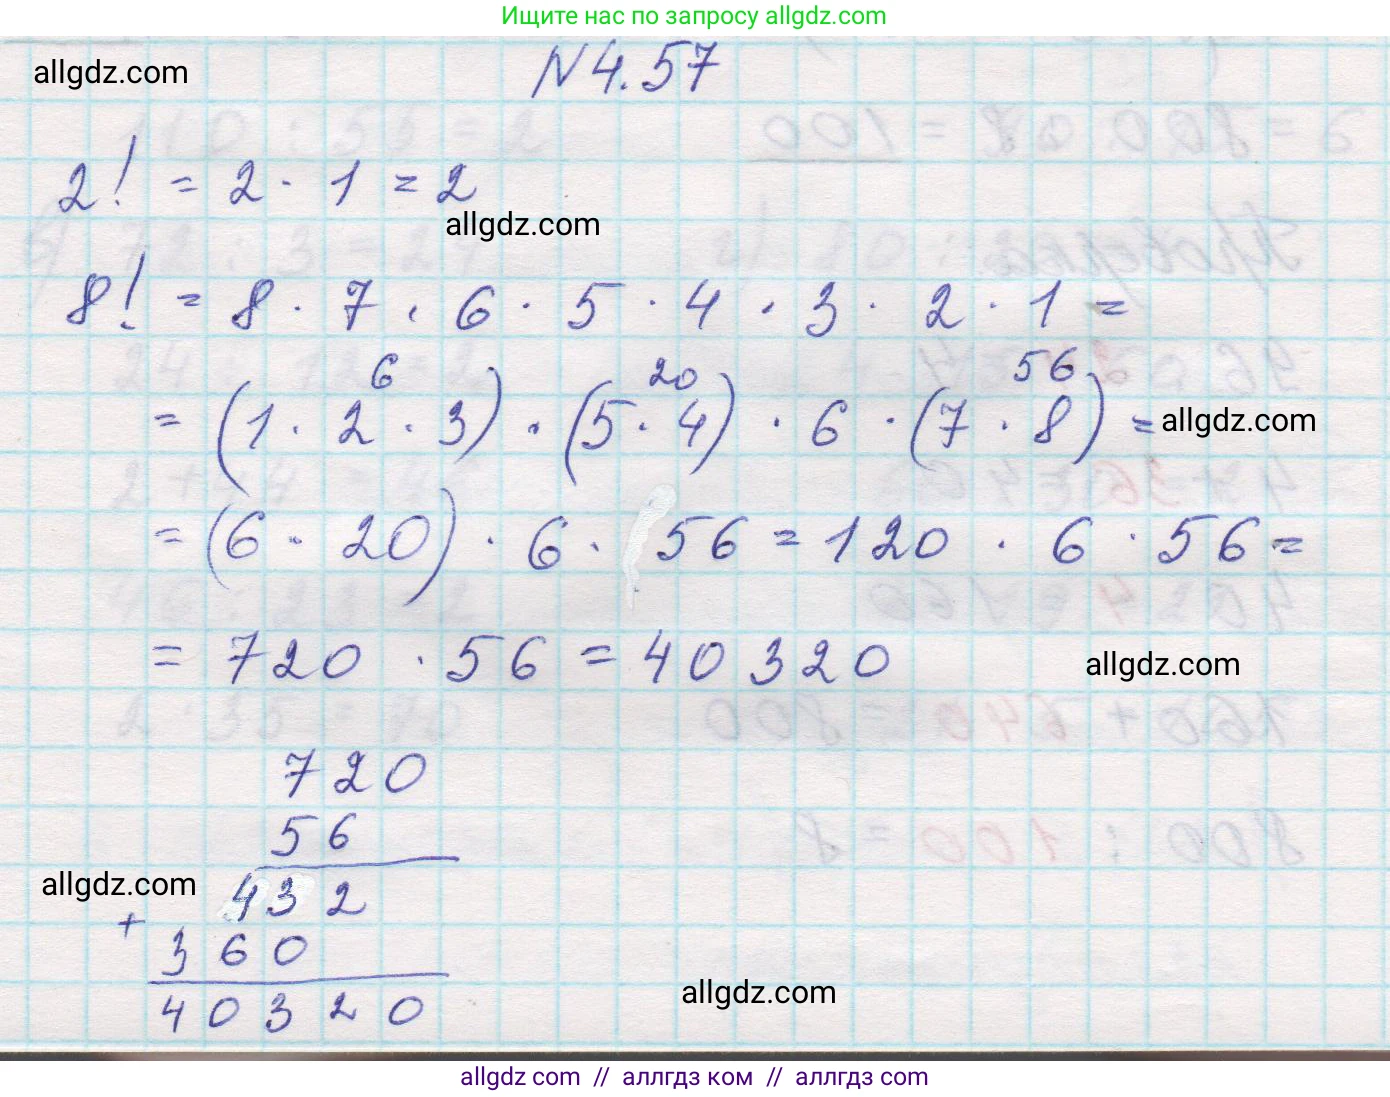 Ищите нас по запросу allgdz.com
allgdz.com
N 4.57
2! = 2 · 1 = 2
allgdz.com
8! = 8 · 7 · 6 · 5 · 4 · 3 · 2 · 1 =
6 20 56
= (1 · 2 · 3) · (5 · 4) · 6 · (7 · 8) =
allgdz.com
= (6 · 20) · 6 · 56 = 120 · 6 · 56 =
= 720 · 56 = 40320
allgdz.com
720
56
allgdz.com
432
+
360
allgdz.com
40320
allgdz.com // аллгдз ком // аллгдз com